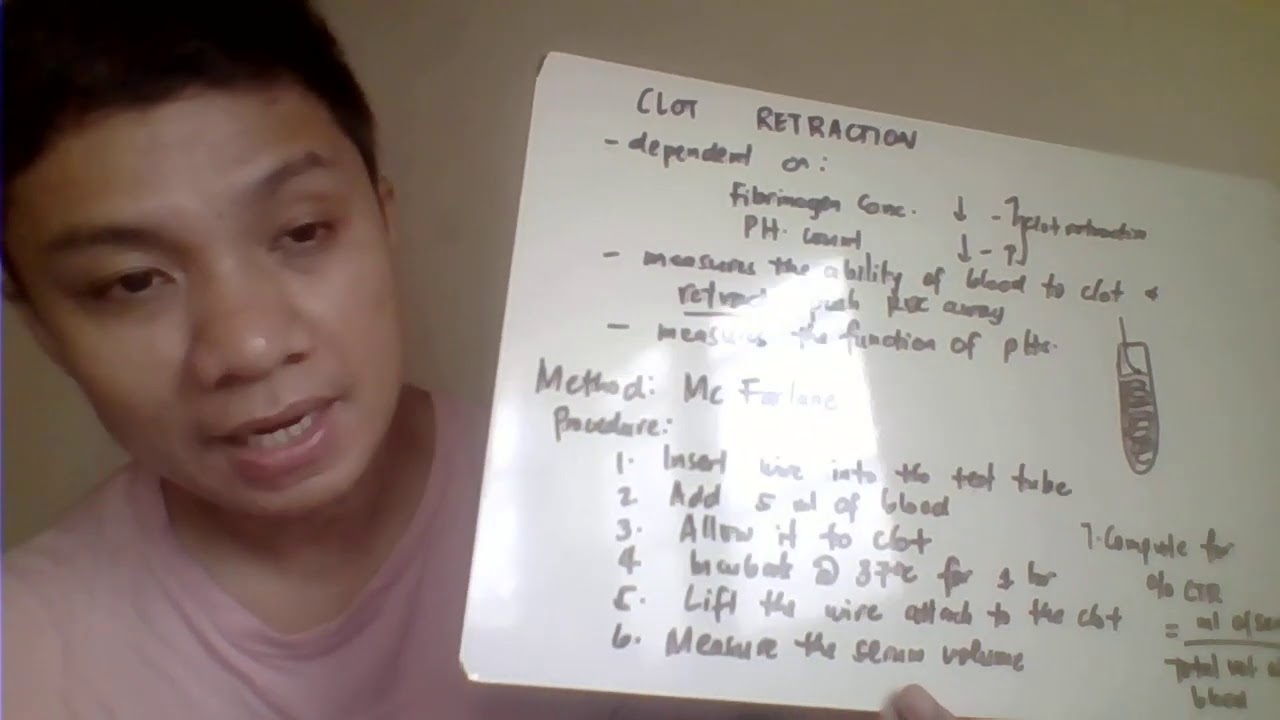 CLOT RETRACTION
- dependent on:
Fibrinogen Conc. ↓ - ↑ clot retraction
Plt. count ↓ - ↑
- measures the ability of blood to clot &
retract push RBC away
- measures the function of plts.
Method: Mc Farlane
Procedure:
1. Insert wire into the test tube
2. Add 5 ml of blood
3. Allow it to clot
4. Incubate @ 37°C for 1 hr
5. Lift the wire attach to the clot
6. Measure the serum volume
7. Compute for
% CTR
= ml of
Total
blood